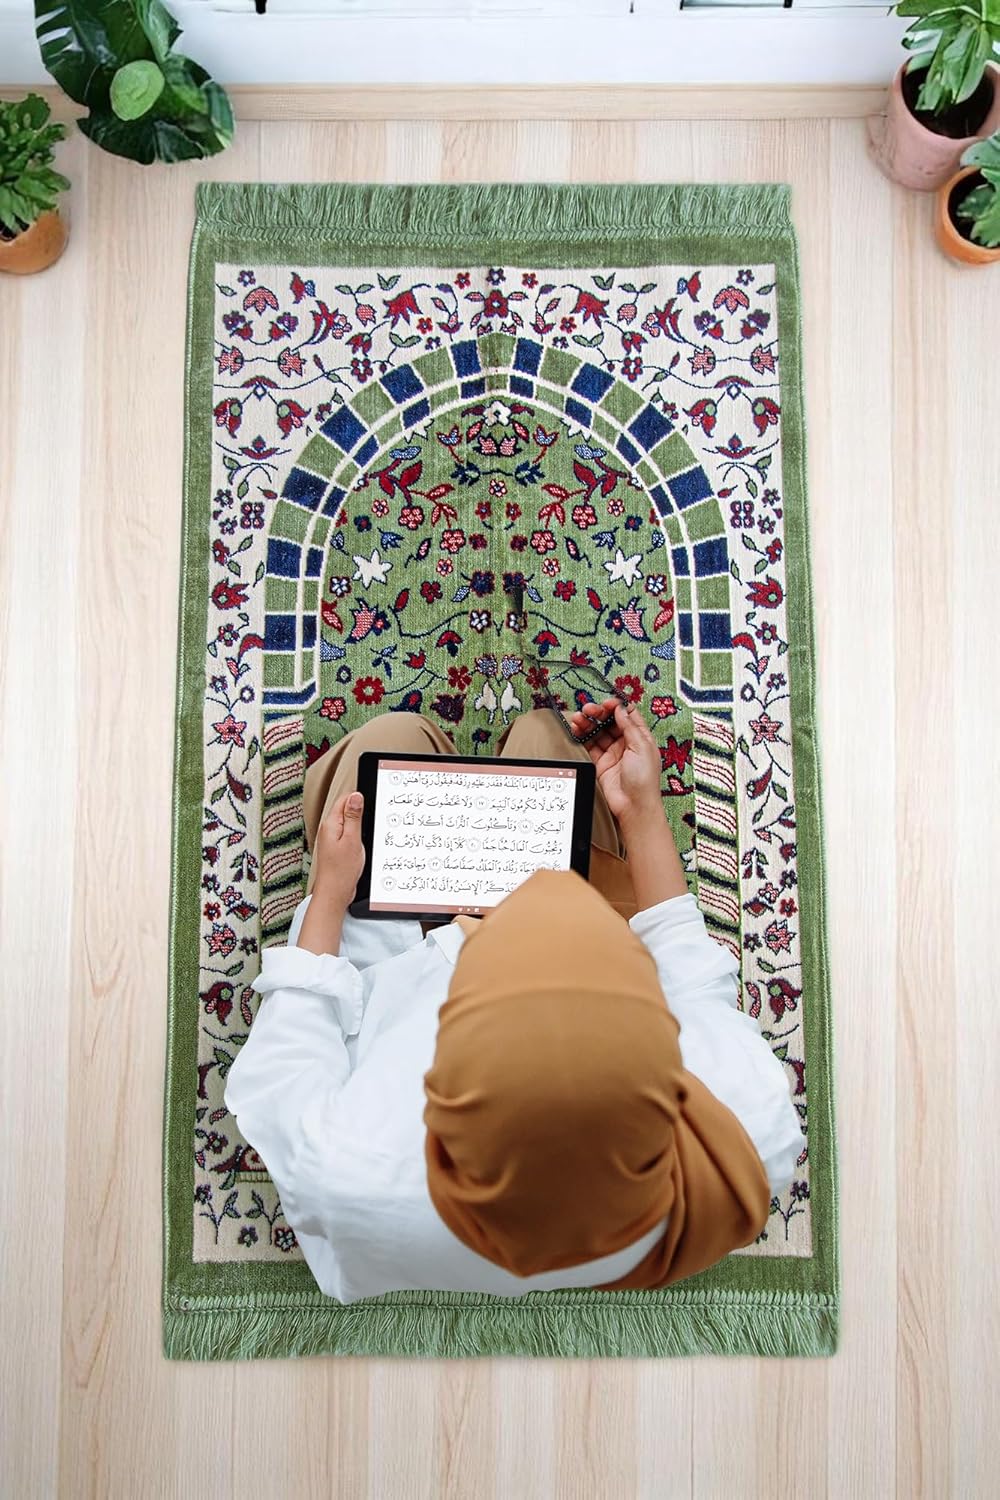 ١٥ وَأَمَّآ إِذَا مَا ٱبْتَلَىٰهُ فَقَدَرَ عَلَيْهِ رِزْقَهُۥ فَيَقُولُ رَبِّىٓ أَهَٰنَنِ ١٦
كَلَّا ۖ بَل لَّا تُكْرِمُونَ ٱلْيَتِيمَ ١٧ وَلَا تَحَٰٓضُّونَ عَلَىٰ طَعَامِ
ٱلْمِسْكِينِ ١٨ وَتَأْكُلُونَ ٱلتُّرَاثَ أَكْلًا لَّمًّا ١٩
وَتُحِبُّونَ ٱلْمَالَ حُبًّا جَمًّا ٢٠ كَلَّآ إِذَا دُكَّتِ ٱلْأَرْضُ دَكًّا
دَكًّا وَجَآءَ رَبُّكَ وَٱلْمَلَكُ صَفًّا صَفًّا ٢٢ وَجِا۟ىٓءَ يَوْمَئِذٍۭ
يَتَذَكَّرُ ٱلْإِنسَٰنُ وَأَنَّىٰ لَهُ ٱلذِّكْرَىٰ ٢٣